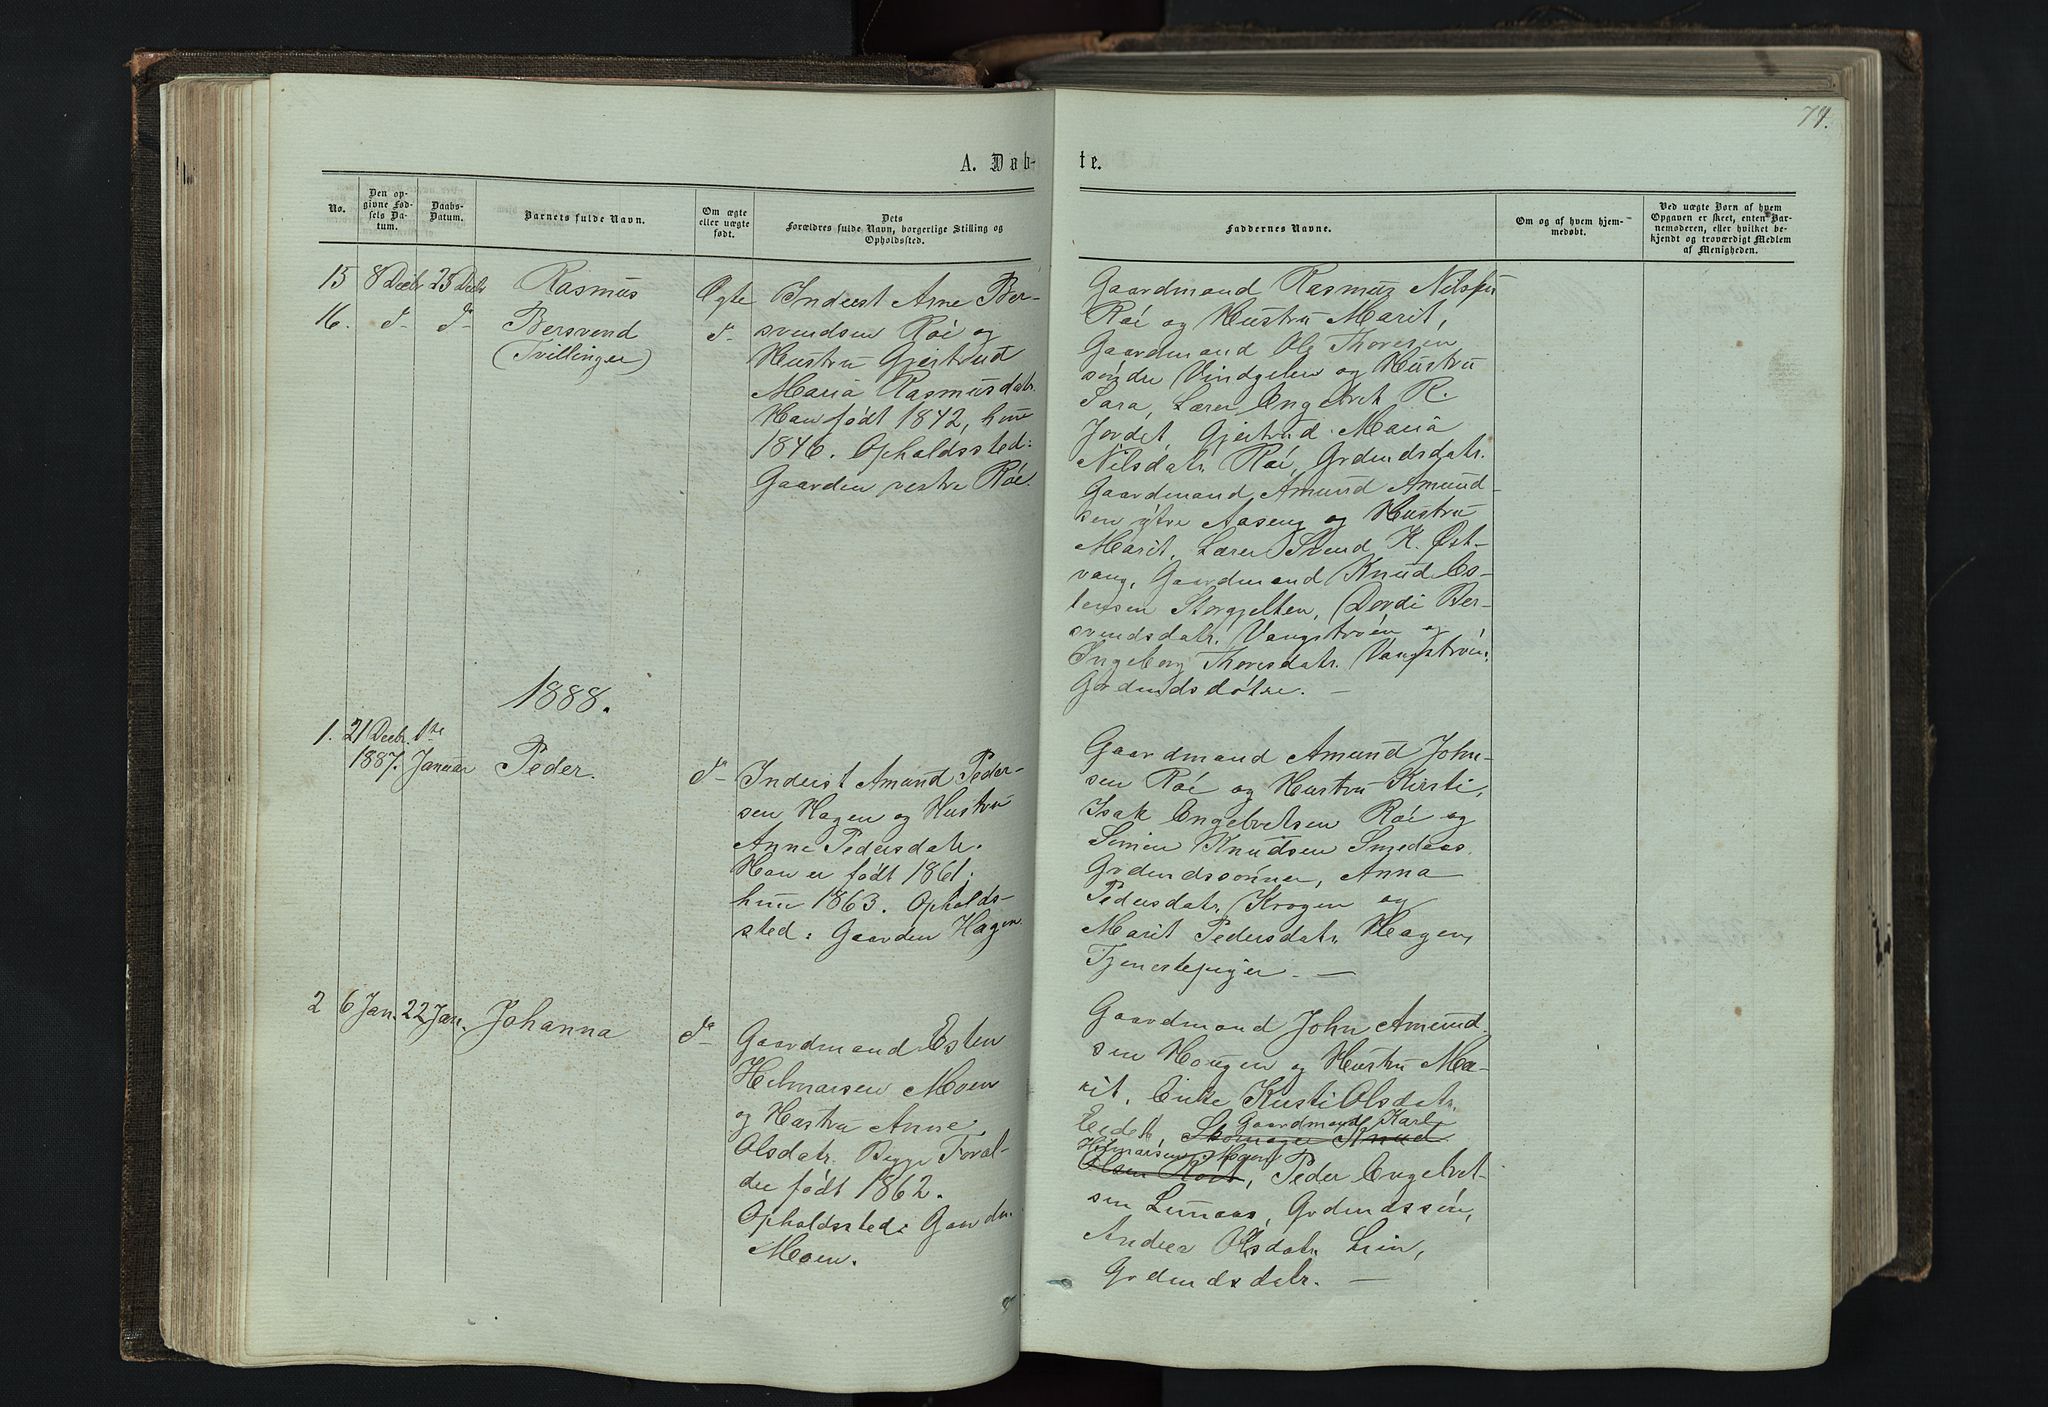 74.
A. Døb-
te.
No.
Den op-
givne Fød-
sels Da-
tum.
Daabs-
Datum.
Barnets fulde Navn.
Om ægte
eller uægte
født.
Dets
Forældres fulde Navn, borgerlige Stilling og
Opholdssted.
Faddernes Navne.
Om og af hvem hjem-
medøbt.
Ved uægte Børn af hvem
Opgaven er skeet, enten Bar-
nemoderen, eller hvilket be-
kjendt og troværdigt Medlem
af Menigheden.
15 8 Decbr 25 Decbr Rasmus Ægte
16. do do Bersvend do
(Tvillinger)
Inderst Arne Ber-
svendsen Röe og
Hustru Gjertrud
Maria Rasmusdatr.
Han født 1842, hun
1846. Opholdssted:
Gaarden vestre Röe.
Gaardmand Rasmus Nilsen
Röe og Hustru Marit,
Gaardmand Ole Thoresen
söndre Vindgelen og Hustru
Sara, Lærer Engebret R.
Jordet, Gjertrud Maria
Nilsdatr. Röe, Grdmdsdatr.
Gaardmand Amund Amund-
sen ytre Aaseng og Hustru
Marit, Lærer Svend K. Øst-
vang, Gaardmand Knud Es-
tensen Storgjelten, Dordi Ber-
svendsdatr. Vangströen og
Ingeborg Thoresdatr. Vangströen,
Grdmdsdøtre. —
1888.
1. 21 Decbr. 1ste
1887. Januar Peder. do
Inderst Amund Peder-
sen Hagen og Hustru
Anne Pedersdatr.
Han er født 1861;
hun 1863. Opholds-
sted: Gaarden Hagen.
Gaardmand Amund John-
sen Röe og Hustru Kirsti,
Isak Engebretsen Röe og
Simen Knudsen Smedaas
Grdmdssønner, Anna
Pedersdatr. Krogen og
Marit Pedersdatr. Hagen,
Tjenestepiger. —
2 6 Jan. 22 Jan. Johanna do
Gaardmand Esten
Hilmarsen Moen
og Hustru Anne
Olsdatr. Begge Foræl-
dre født 1862.
Opholdssted: Gaarden
Moen.
Gaardmand John Amund-
sen Hougen og Hustru Ma-
rit, Enke Kirsti Olsdatr.
Gaardmand Karl
Eidet, Skomager Knud
Hilmarsen Moen
Olsen, Peder Engebret-
sen Lunaas, Grdmdssön,
Andrea Olsdatr. Lien,
Grdmdsdatr. —